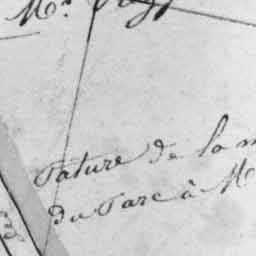 Mr
Pature de la m
du Parc à M